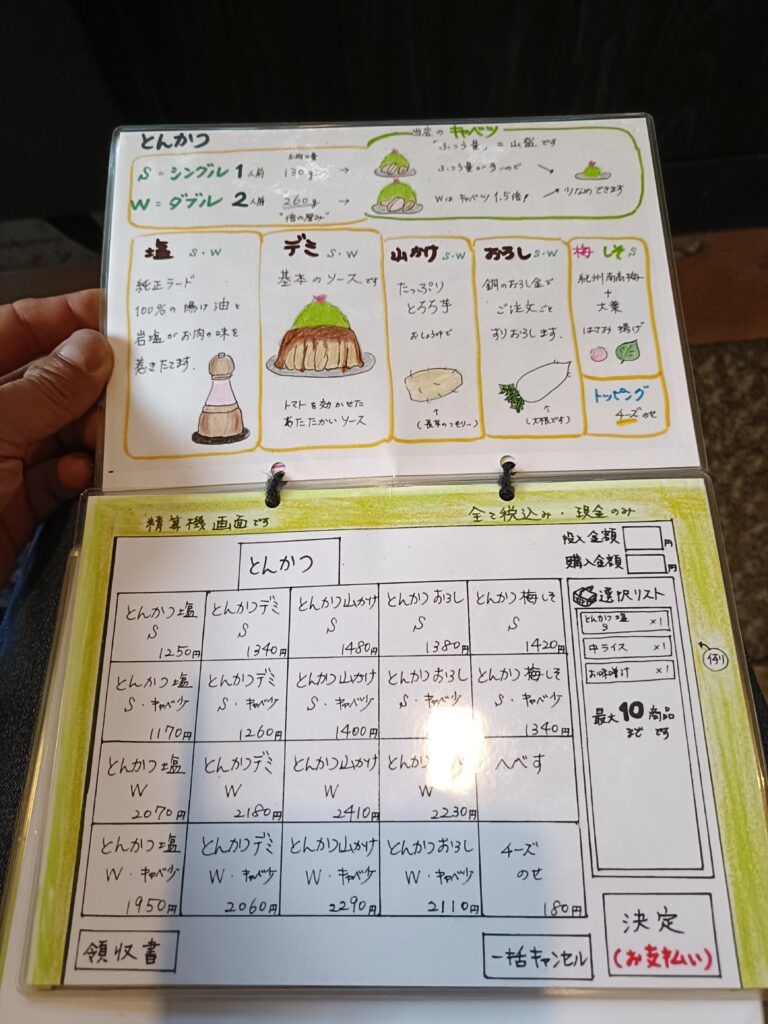 とんかつ
S = シングル 1 人前
お肉の量
130g →
W = ダブル 2 人前
260g →
"倍の厚み"
当店の キャベツ
「ふつう量」= 山盛です
ふつう量が多いので
少なめできます
Wは キャベツ 1.5倍!
塩 S・W
純正ラード
100%の揚げ油と
岩塩がお肉の味を
惹きたてます.
デミ S・W
基本のソースです
トマトを効かせた
あたたかいソース
山かけ S・W
たっぷり
とろろ芋
おしょうゆで
↑
(長芋のつもりー)
おろし S・W
銅のおろし金で
ご注文ごと
すりおろします.
↑
(大根です)
梅しそ S
紀州南高梅
+
大葉
はさみ揚げ
トッピング
チーズのせ
精算機画面です
全て税込み・現金のみ
とんかつ
投入金額 円
購入金額 円
とんかつ塩
S
1250円
とんかつデミ
S
1340円
とんかつ山かけ
S
1480円
とんかつおろし
S
1380円
とんかつ梅しそ
S
1420円
とんかつ塩
S・キャベ少
1170円
とんかつデミ
S・キャベ少
1260円
とんかつ山かけ
S・キャベ少
1400円
とんかつおろし
S・キャベ少
とんかつ梅しそ
S・キャベ少
1340円
とんかつ塩
W
2070円
とんかつデミ
W
2180円
とんかつ山かけ
W
2410円
とんかつ
W
2230円
へべす
とんかつ塩
W・キャベ少
1950円
とんかつデミ
W・キャベ少
2060円
とんかつ山かけ
W・キャベ少
2290円
とんかつおろし
W・キャベ少
2110円
チーズ
のせ
180円
選択リスト
とんかつ塩
S ×1
中ライス ×1
お味噌汁 ×1
例)
最大10商品
までです
領収書
一括キャンセル
決定
(お支払い)